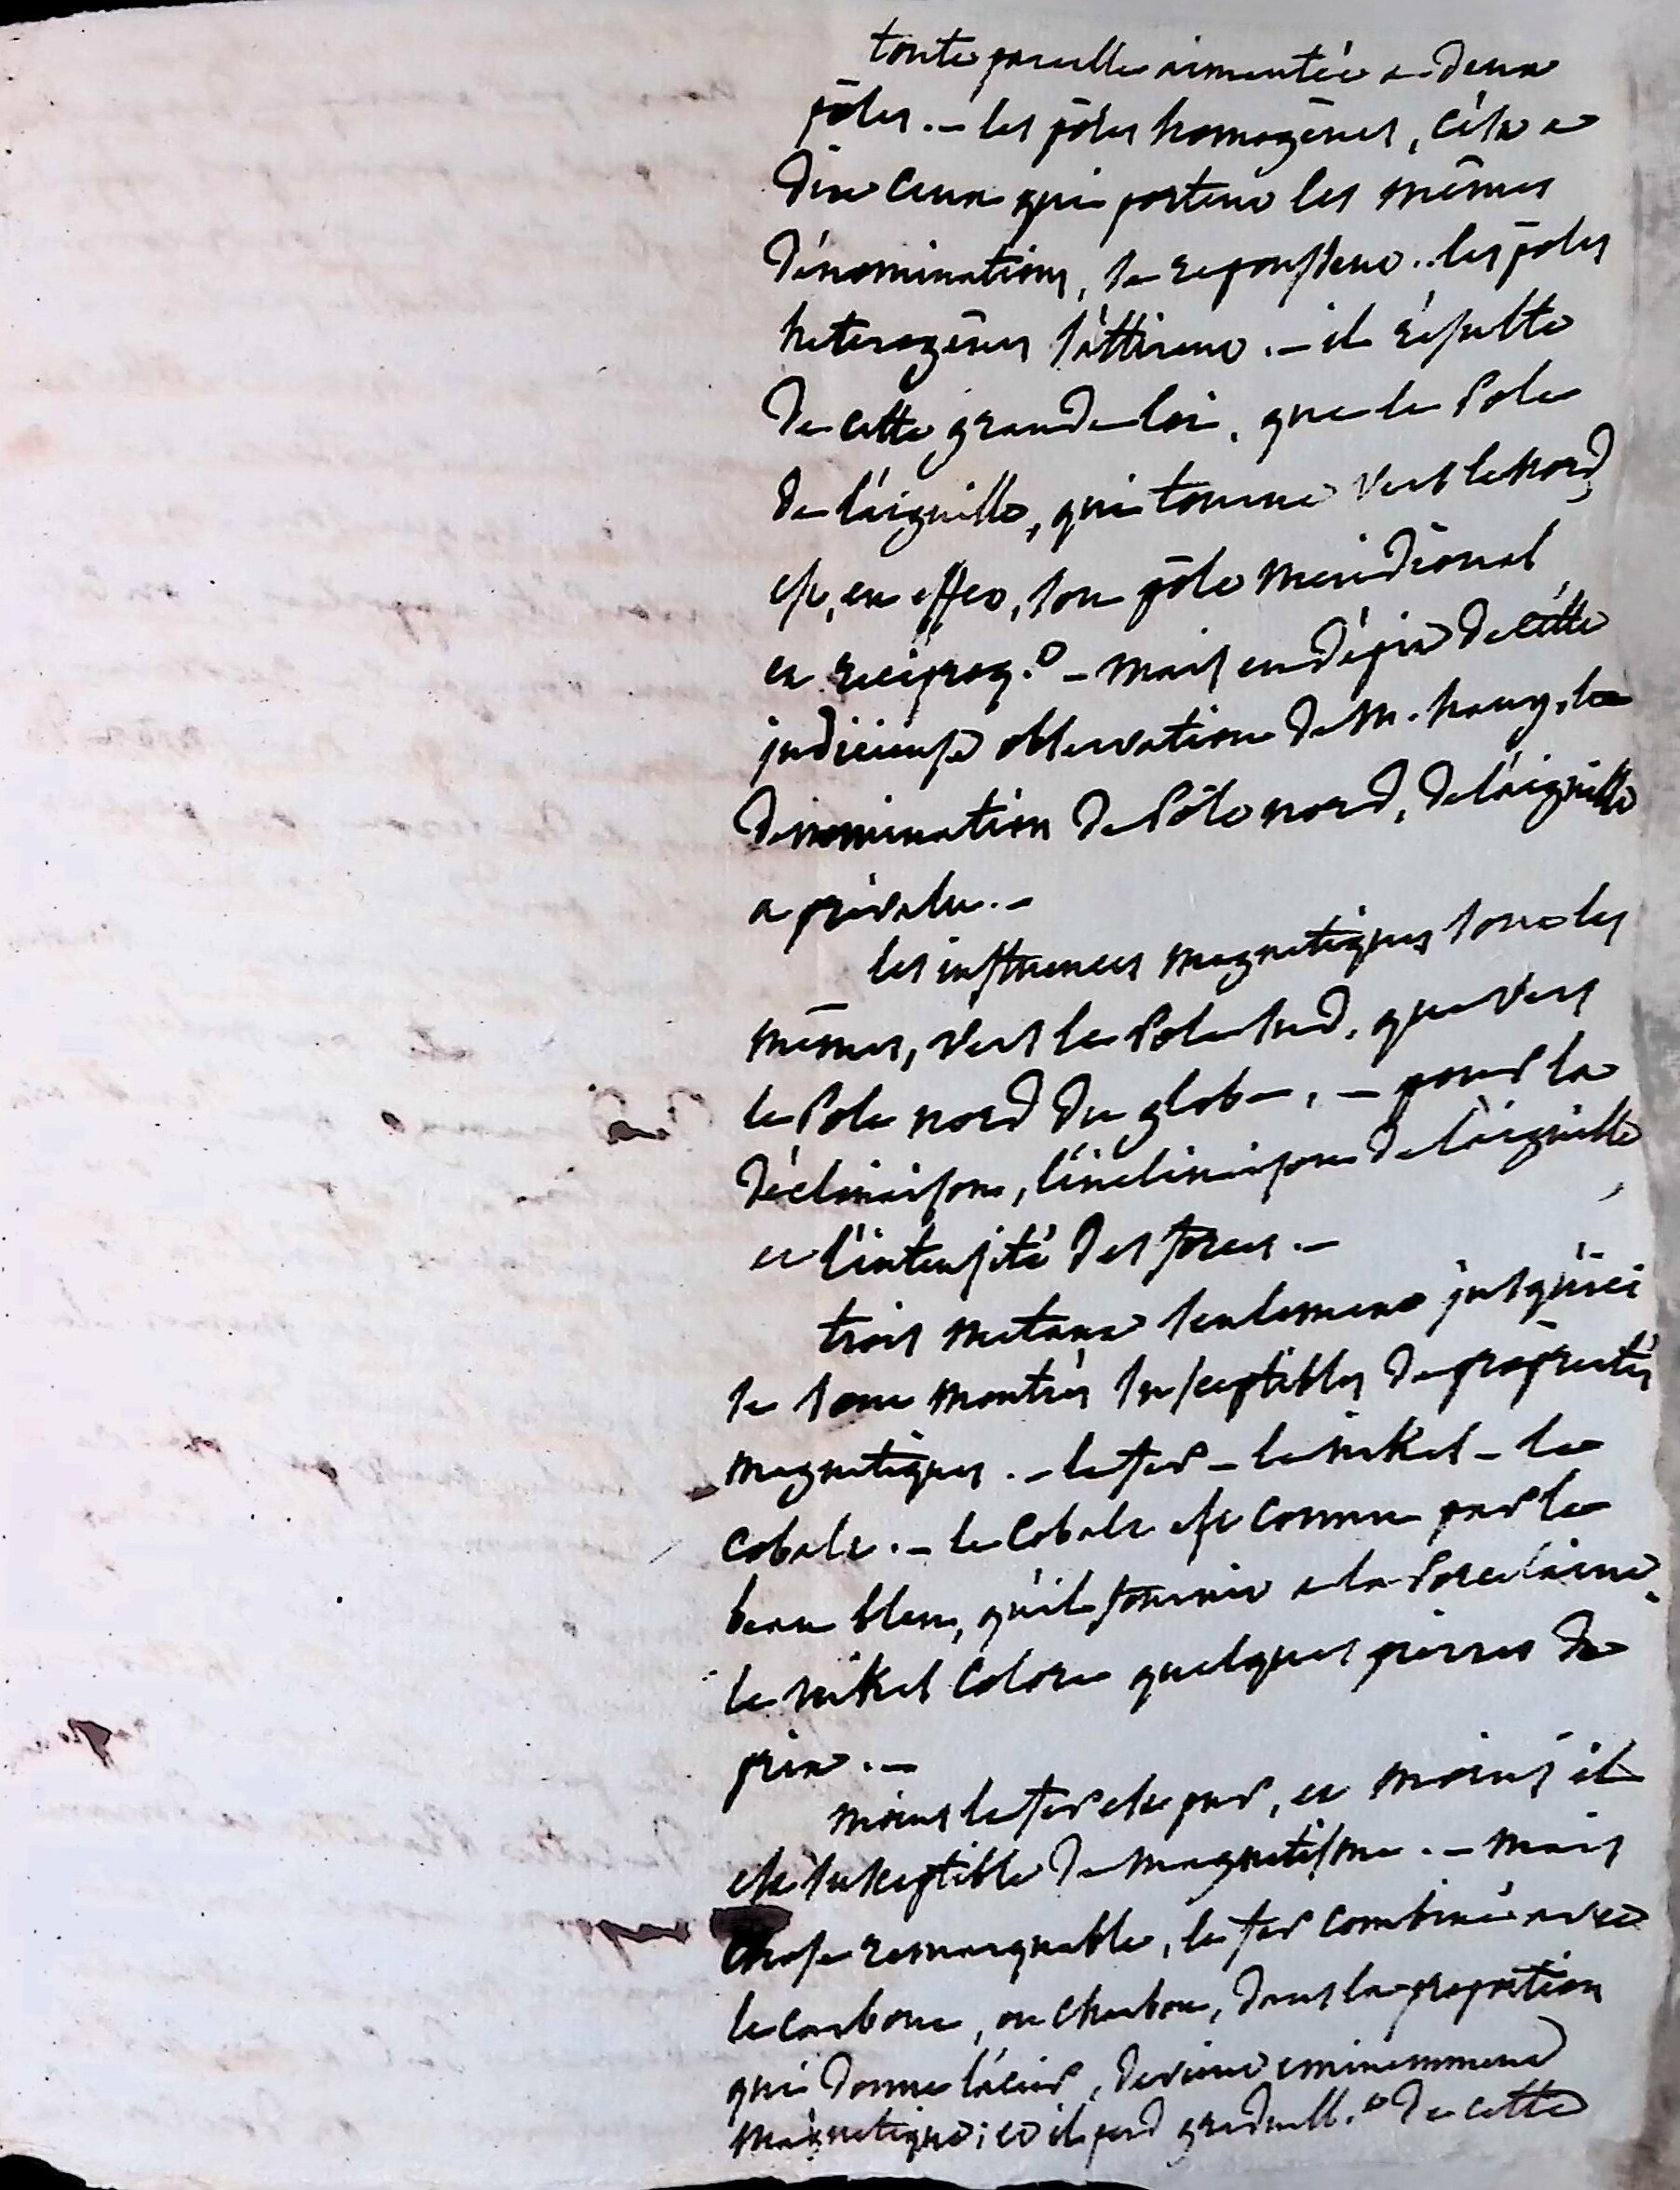 toute parcelle aimentée a deux
pôles. – les pôles homogènes, c'est a
dire ceux qui portent les mêmes
dénominations, se repoussent.. les pôles
heterogènes s'attirent. – il résulte
de cette grande loi, que le Pole
de l'aiguille, qui tourne vers le nord
est, en effet, son pôle meridional
et reciproq.t – mais en dépit de cette
judicieuse observation de M. hauy, la
denomination de Pôle nord, de l'aiguille
a prévalu. –
les influences magnetiques sont les
mêmes, vers le Pole sud, que vers
le Pole nord du globe, – pour la
déclinaison, l'inclinaison de l'aiguille,
et l'intensité des forces. –
trois metaux seulement jusqu'ici
se sont montrés susceptibles de propriétés
magnetiques. – le fer – le nikel – le
cobalt. – le Cobalt est connu par le
beau bleu, qu'il fournit a la Porcelaine.
le nikel colore quelques pierres de
prix. –
moins le fer est pur, et moins il
est susceptible de magnetisme. – mais
chose remarquable, le fer combiné avec
le carbone, ou charbon, dans la proportion
qui donne l'acier, devient eminemment
magnetique; et il perd graduell.t de cette